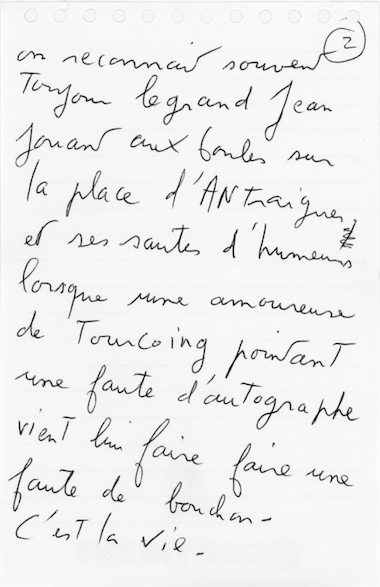 2
on reconnait souvent
Toujour le grand Jean
jouant aux boules sur
la place d'ANtraigues,
et ses sautes d'humeurs
lorsque une amoureuse
de Tourcoing pointant
une faute d'autographe
vient lui faire faire une
faute de bouchon -
C'est la vie -